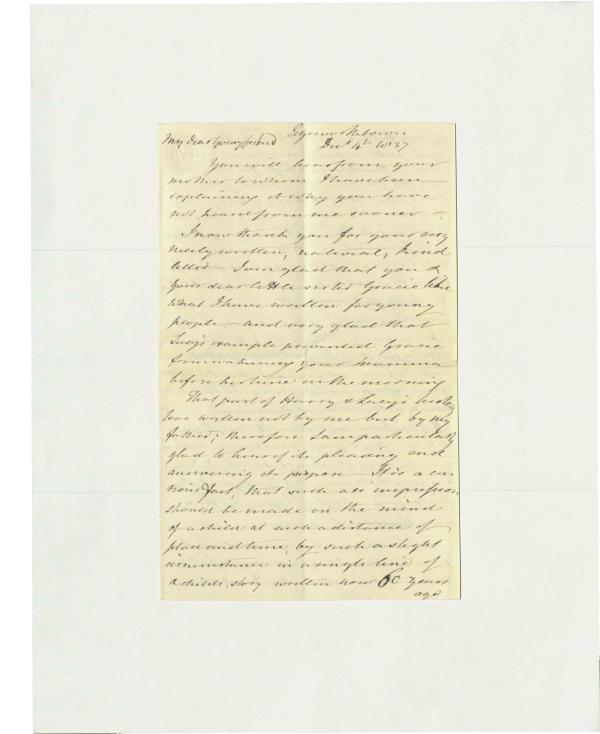 Edgeworthstown
My dear young friend Decr 4th 1837
You will hear from your
mother to whom I have been
explaining it why you have
not heard from me sooner —
I now thank you for your very
nicely written, natural, kind
letter — I am glad that you &
your dear little sister Gracie like
what I have written for young
people — and very glad that
Lucy's example prevented Gracie
from wakening your Mamma
before her time in the morning
That part of Harry & Lucy's history
was written not by me but by my
father; therefore I am particularly
glad to hear of its pleasing and
answering its purpose — It is a cu
rious fact, that such an impression
should be made on the mind
of a child at such a distance of
place and time, by such a slight
circumstance in a single line of
a child's story written now 60 years
ago